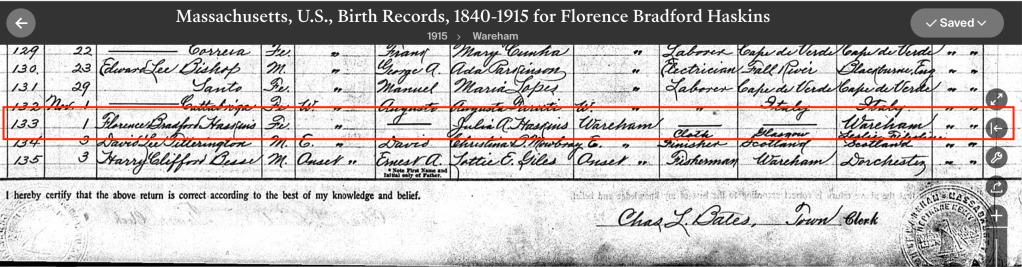 Massachusetts, U.S., Birth Records, 1840-1915 for Florence Bradford Haskins
Saved
1915 > Wareham
129 22 —— Correia Fe. " Frank Mary Cunha " Laborer Cape de Verde Cape de Verde " "
130. 23 Edward Lee Bishop M. " George A. Ada Parkinson " Electrician Fall River Blackburn, Eng " "
131 29 —— Santo Fe. " Manuel Maria Lopes " Laborer Cape de Verde Cape de Verde " "
132 Nov. 1 —— Fe. W. " Augusto Augusta W. " " Italy Italy " "
133 1 Florence Bradford Haskins Fe. " —— Julia A. Haskins Wareham —— —— Wareham " "
134 3 David Lee M. E. " David Christina L. Mowbray E. " Cloth Finisher Glasgow Scotland Scotland " "
135 3 Harry Clifford Besse M. Onset " Ernest A. Lottie E. Giles Onset " Fisherman Wareham Dorchester " "
* Note First Name and
Initial only of Father.
I hereby certify that the above return is correct according to the best of my knowledge and belief.
Chas L. Bates, Town Clerk